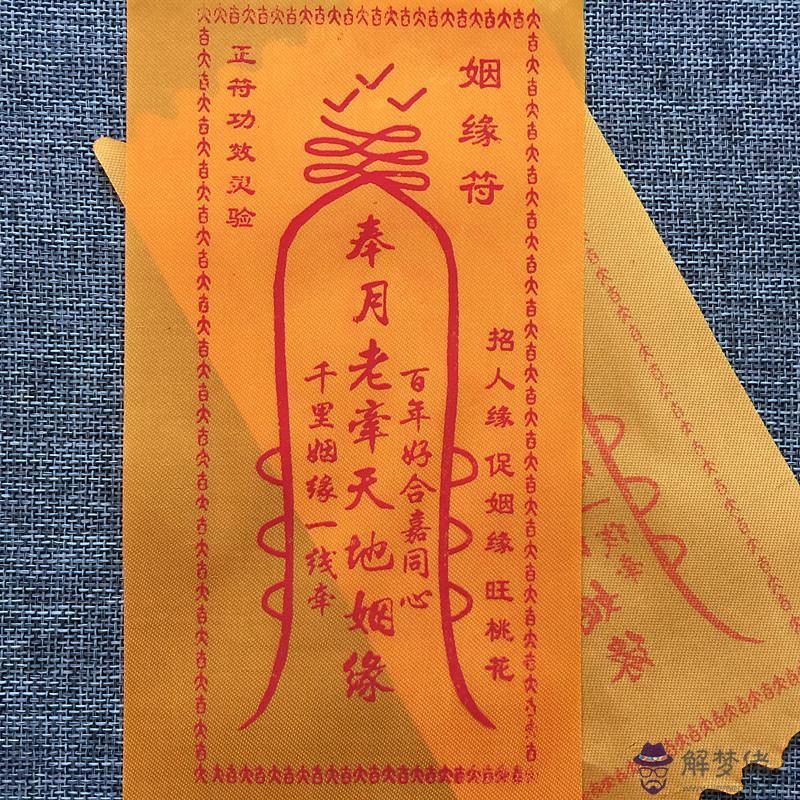 姻缘符
招人缘 促姻缘 旺桃花
百年好合嘉同心
奉月老牵天地姻缘
千里姻缘一线牵
正符功效灵验
解梦佬